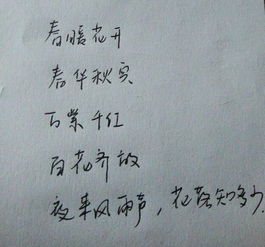 春暖花开
春华秋实
万紫千红
百花齐放
夜来风雨声，花落知多少